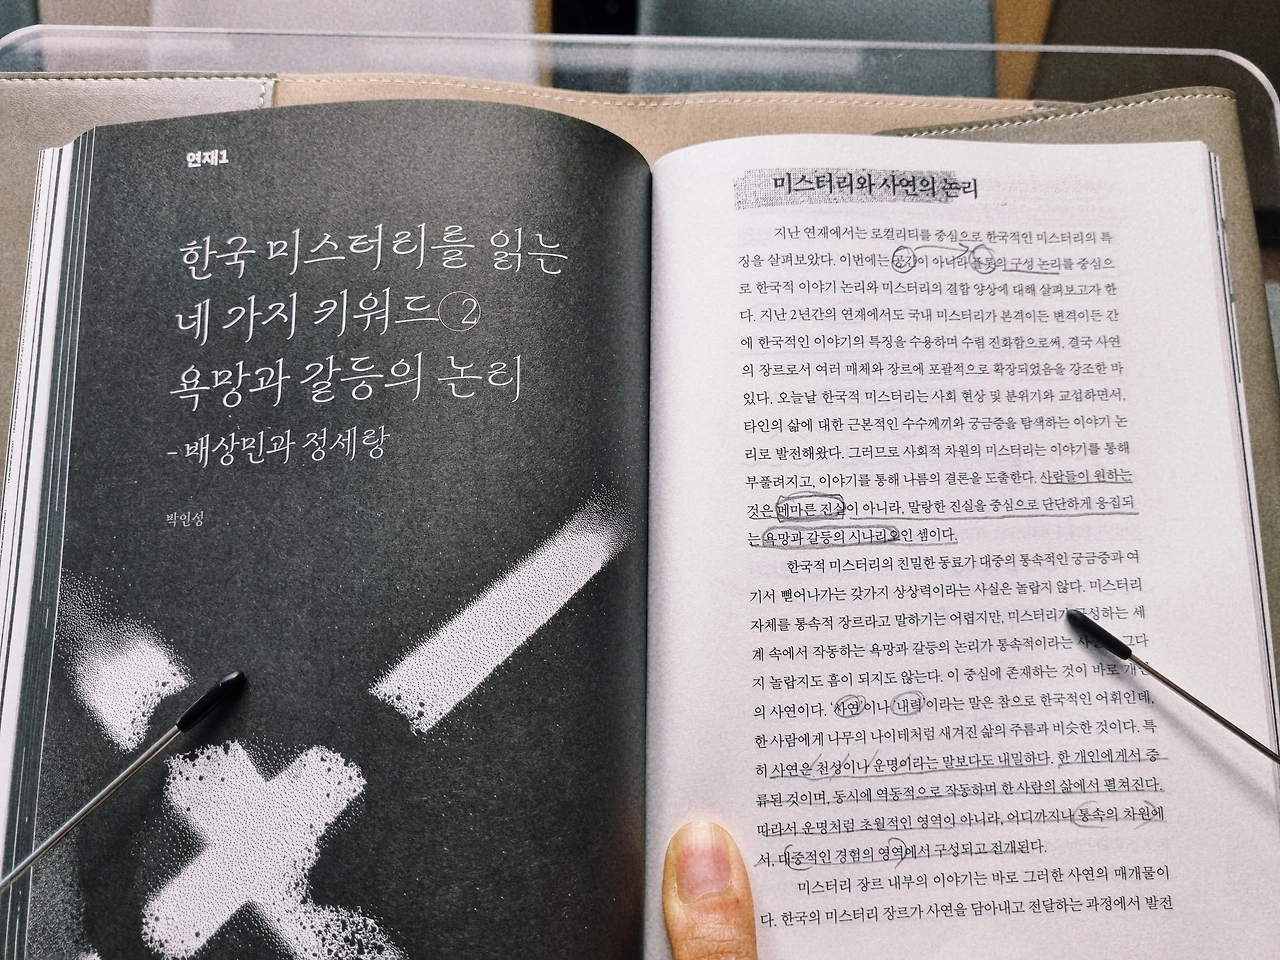 연재1
한국 미스터리를 읽는
네 가지 키워드②
욕망과 갈등의 논리
- 배상민과 정세랑
박인성
미스터리와 사연의 논리
지난 연재에서는 로컬리티를 중심으로 한국적인 미스터리의 특
징을 살펴보았다. 이번에는 공간이 아니라 플롯의 구성 논리를 중심으
로 한국적 이야기 논리와 미스터리의 결합 양상에 대해 살펴보고자 한
다. 지난 2년간의 연재에서도 국내 미스터리가 본격이든 변격이든 간
에 한국적인 이야기의 특징을 수용하며 수렴 진화함으로써, 결국 사연
의 장르로서 여러 매체와 장르에 포괄적으로 확장되었음을 강조한 바
있다. 오늘날 한국적 미스터리는 사회 현상 및 분위기와 교섭하면서,
타인의 삶에 대한 근본적인 수수께끼와 궁금증을 탐색하는 이야기 논
리로 발전해왔다. 그러므로 사회적 차원의 미스터리는 이야기를 통해
부풀려지고, 이야기를 통해 나름의 결론을 도출한다. 사람들이 원하는
것은 메마른 진실이 아니라, 말랑한 진실을 중심으로 단단하게 응집되
는 욕망과 갈등의 시나리오인 셈이다.
한국적 미스터리의 친밀한 동료가 대중의 통속적인 궁금증과 여
기서 뻗어나가는 갖가지 상상력이라는 사실은 놀랍지 않다. 미스터리
자체를 통속적 장르라고 말하기는 어렵지만, 미스터리가 구성하는 세
계 속에서 작동하는 욕망과 갈등의 논리가 통속적이라는 그다
지 놀랍지도 흠이 되지도 않는다. 이 중심에 존재하는 것이 바로 개인
의 사연이다. '사연'이나 '내력'이라는 말은 참으로 한국적인 어휘인데,
한 사람에게 나무의 나이테처럼 새겨진 삶의 주름과 비슷한 것이다. 특
히 사연은 천성이나 운명이라는 말보다도 내밀하다. 한 개인에게서 증
류된 것이며, 동시에 역동적으로 작동하며 한 사람의 삶에서 펼쳐진다.
따라서 운명처럼 초월적인 영역이 아니라, 어디까지나 통속의 차원에
서, 대중적인 경험의 영역에서 구성되고 전개된다.
미스터리 장르 내부의 이야기는 바로 그러한 사연의 매개물이
다. 한국의 미스터리 장르가 사연을 담아내고 전달하는 과정에서 발전